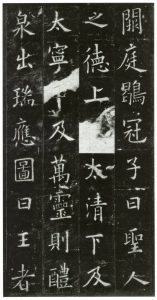 闕庭鶡冠子曰聖人
之德上太清下及
太寧及萬靈則醴
泉出瑞應圖曰王者